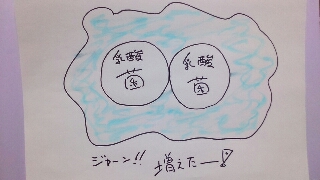 乳酸
菌
乳酸
菌
ジャーン!! 増えたー!